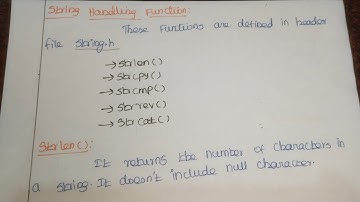 String Handling Function:
These Functions are defined in header
file string.h
→ strlen()
→ strcpy()
→ strcmp()
→ strrev()
→ strcat()
Strlen():
It returns the number of characters in
a string. It doesn't include null character.